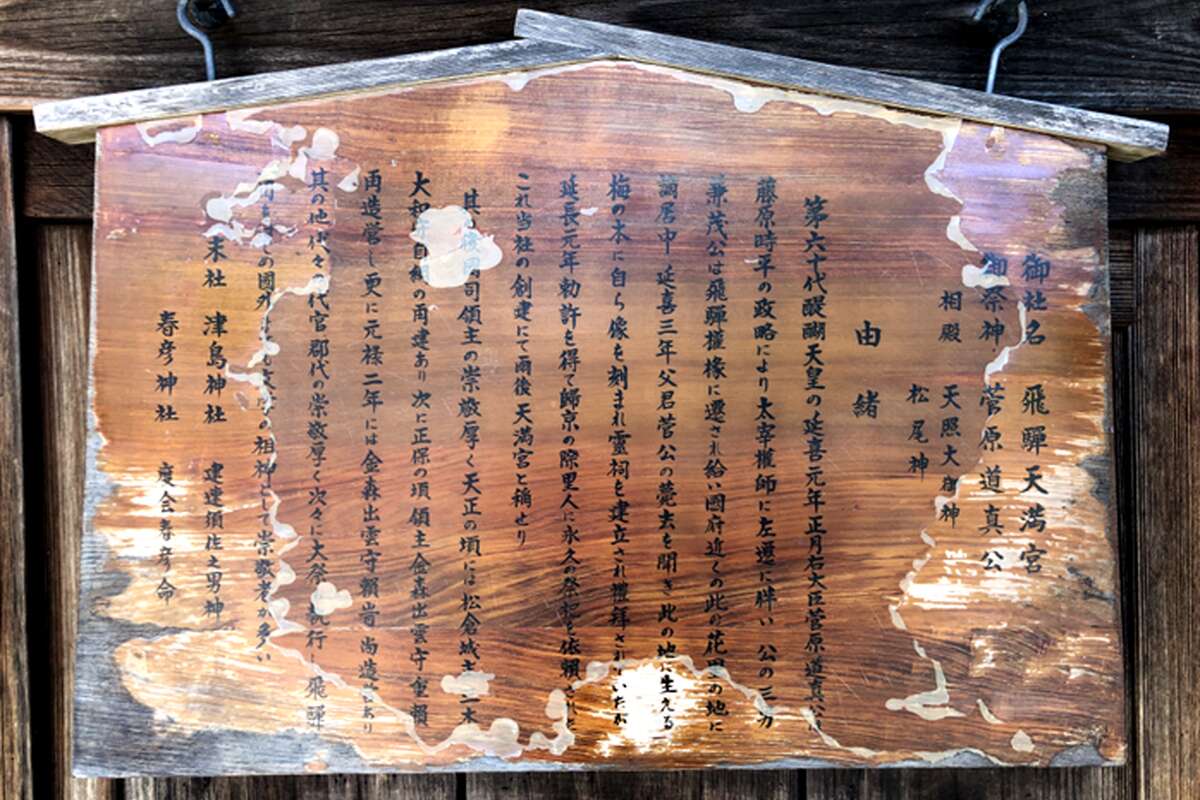 御社名 飛騨天満宮
御祭神 菅原道真公
相殿 天照大御神
松尾神
由緒
第六十代醍醐天皇の延喜元年正月右大臣菅原道真
藤原時平の政略により太宰權師に左遷に伴い 公の三男
兼茂公は飛騨權掾に遷され給い國府近くの此の花里の地に
謫居中 延喜三年父君菅公の薨去を聞き 此の地に生える
梅の木に自ら像を刻まれ靈祠を建立され禮拝され
延長元年勅許を得て歸京の際里人に永久の祭祀を依頼され
これ当社の創建にて雨後天満宮と稱せり
其の後國司領主の崇敬厚く天正の頃には松倉城主三木
大和守自綱の再建あり 次に正保の頃領主金森出雲守重頼
再造営し更に元禄二年には金森出雲守頼峕 尚造営あり
其の他代々の代官郡代の崇敬厚く次々に大祭 執行し飛騨
の國 の祖神として崇敬者が多い
末社 津島神社 建速須佐之男神
春彦神社 度会春彦命